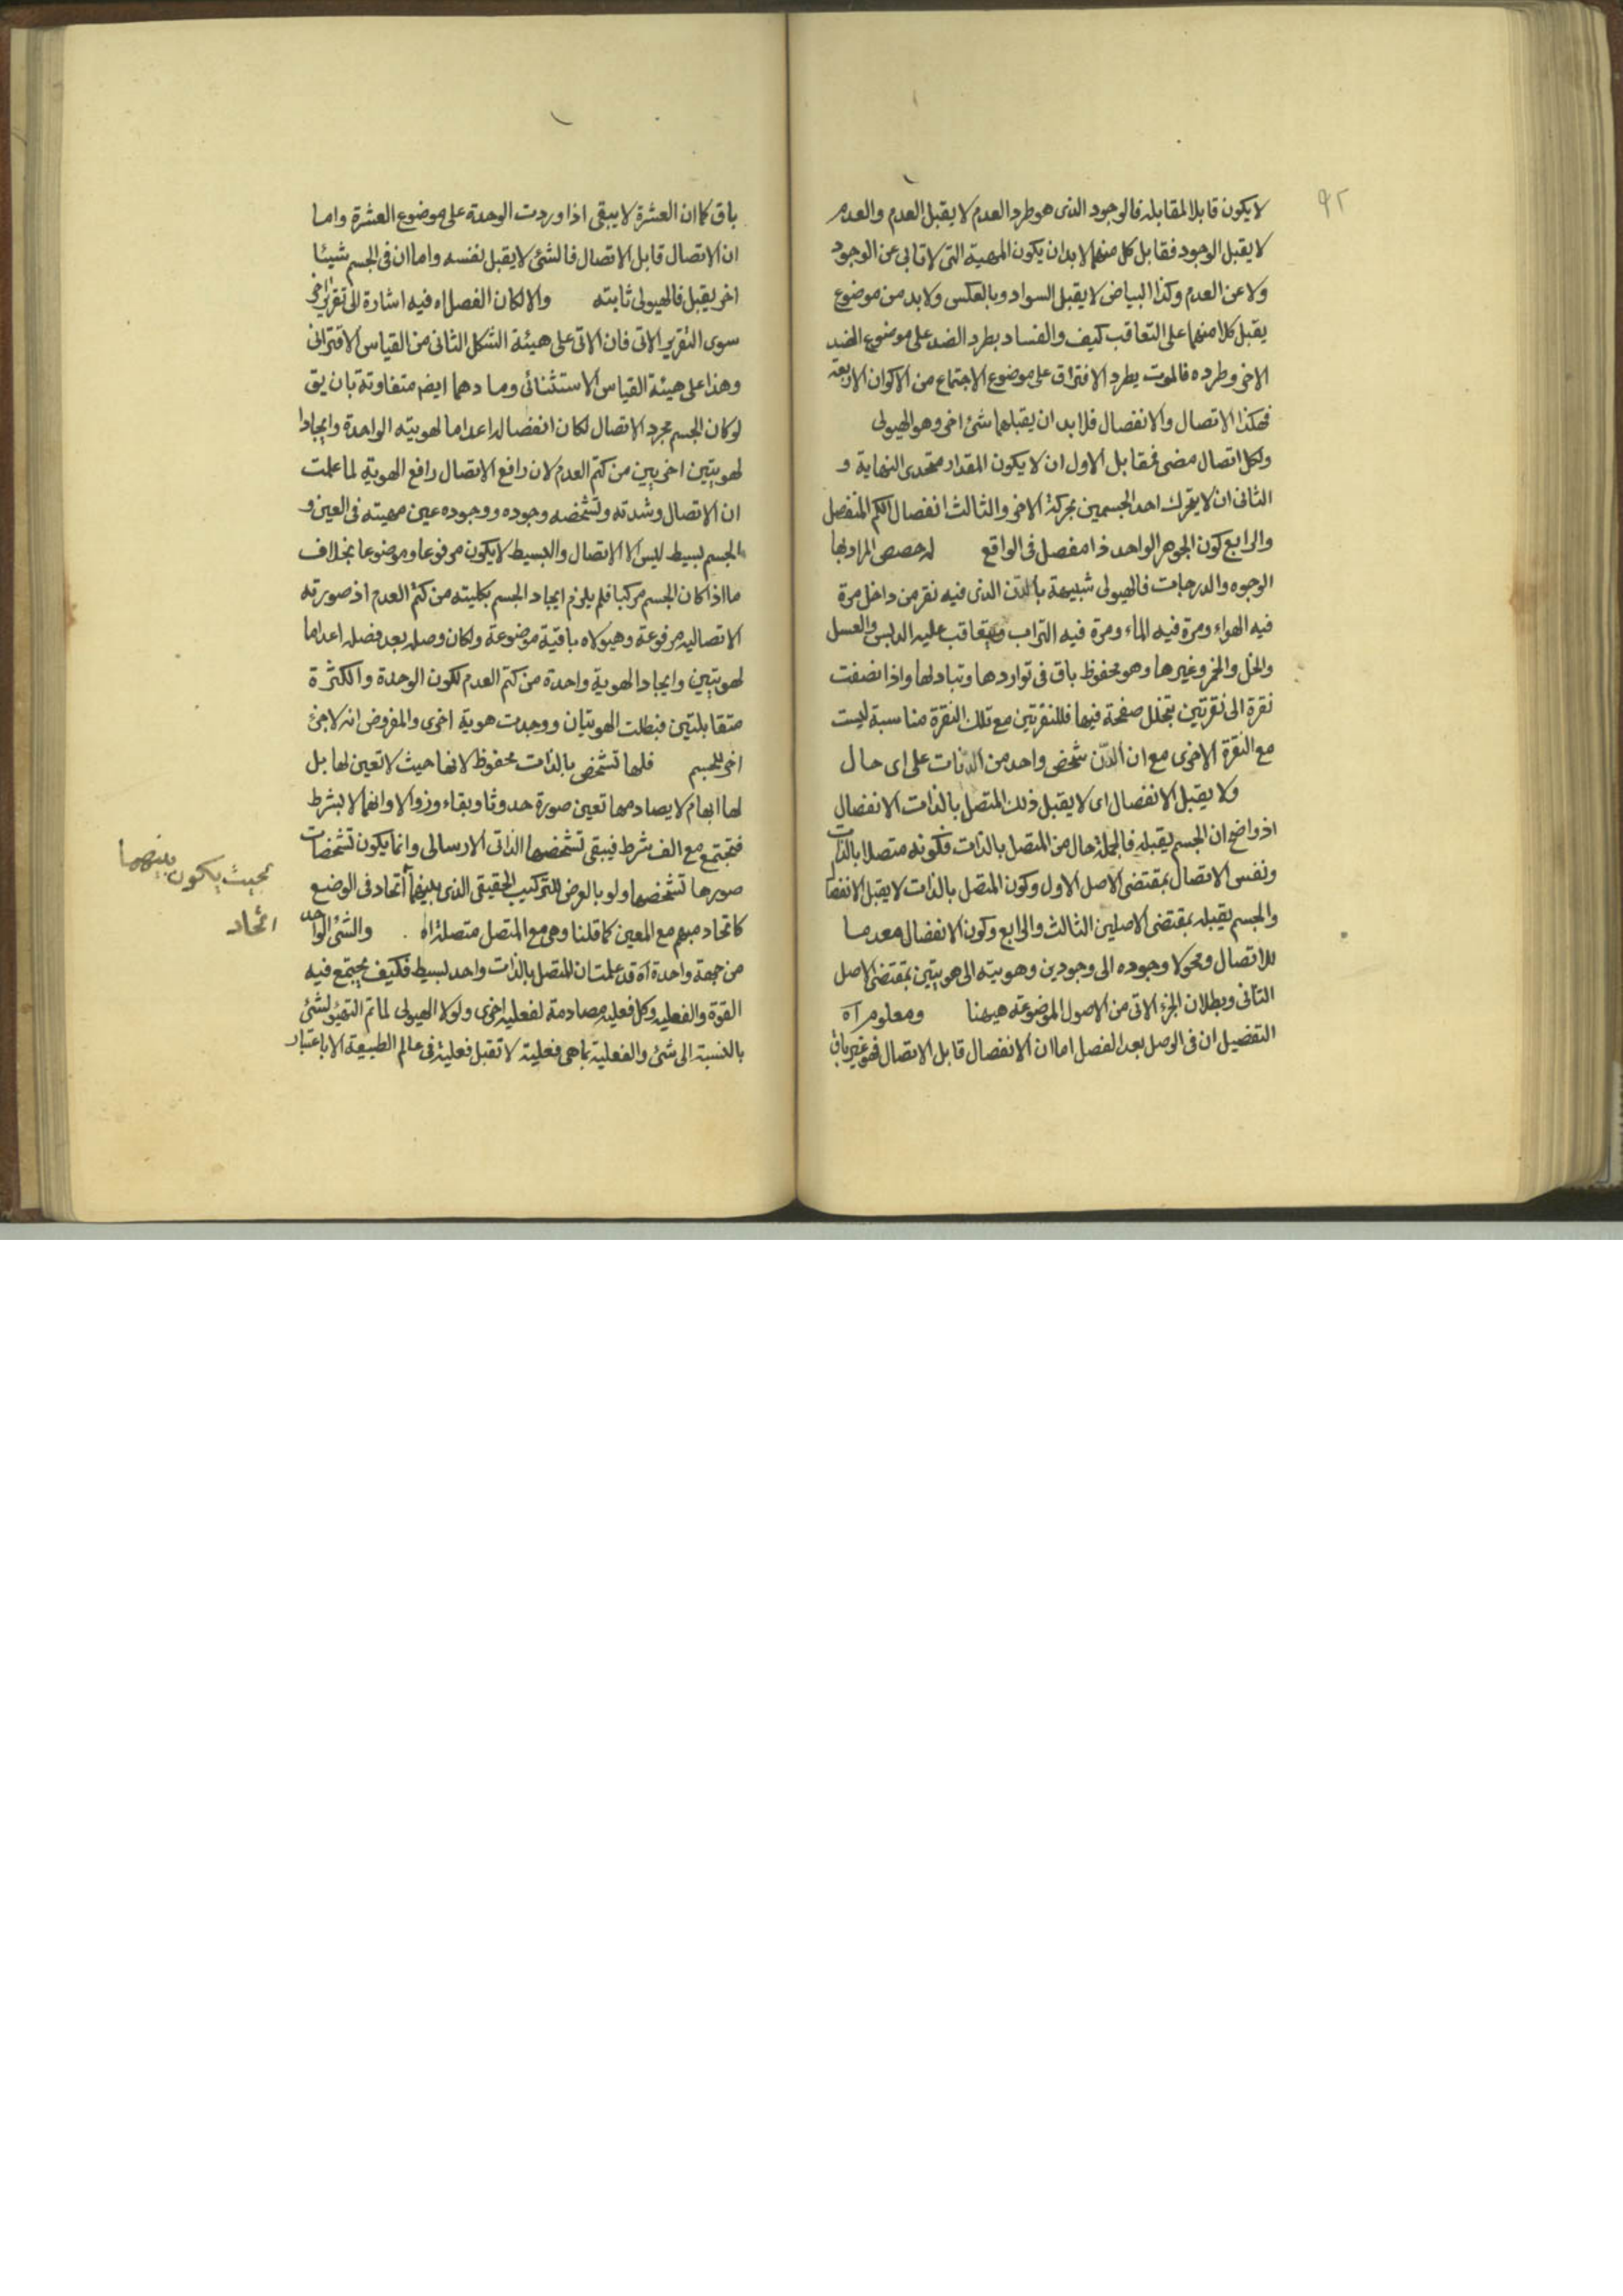 ٩٢
لا يكون قابلا لمقابله فالوجود الذى هو طرد العدم لا يقبل العدم والعدم
لا يقبل الوجود فقابل كل منهما لا بد ان يكون المهية التى لا تابى عن الوجود
ولا عن العدم وكذا البياض لا يقبل السواد وبالعكس ولا بد من موضوع
يقبل كلا منهما على التعاقب كيف والفساد بطرد الضد على موضوع الضد
الاخر وطرده فالموت يطرد الافتراق على موضوع الاجتماع من الاكوان الاربعة
فهكذا الاتصال والانفصال فلا بد ان يقبلهما شئ اخر وهو الهيولى
ولكل اتصال مضى فمقابل الاول ان لا يكون المقدار متحدى النهاية و
الثانى ان لا يتحرك احد الجسمين بحركة الاخر والثالث انفصال الكم المنفصل
والرابع كون الجوهر الواحد ذا مفصل فى الواقع له حصص المراد بها
الوجوه والدرجات فالهيولى شبيهة بالدّن الذى فيه نقر من داخل مرة
فيه الهواء ومرة فيه الماء ومرة فيه التراب ويتعاقب عليه الدبس والعسل
والخل والخمر وغيرها وهو محفوظ باق فى تواردها وتبادلها واذا نصفت
نقرة الى نقرتين بتخلل صفحة فيها فللنقرتين مع تلك النقرة مناسبة ليست
مع النقرة الاخرى مع ان الدّن شخص واحد من الدّنات على اى حال
ولا يقبل الانفصال اى لا يقبل ذلك المتصل بالذات الانفصال
اذ واضح ان الجسم يقبله فالجملة حال من المتصل بالذات فكونه متصلا بالذات
ونفس الاتصال بمقتضى الاصل الاول وكون المتصل بالذات لا يقبل الانفصا
والجسم يقبله بمقتضى الاصلين الثالث والرابع وكون الانفصال معدما
للاتصال ومحولا وجوده الى وجودين وهويته الى هويتين بمقتضى الاصل
الثانى وبطلان الجزء الاتى من الاصول الموضوعة هيهنا ومعلوم آه
التفصيل ان فى الوصل بعد الفصل اما ان الانفصال قابل الاتصال فهو غير باق
باق كما ان العشرة لا يبقى اذا وردت الوحدة على موضوع العشرة واما
ان الاتصال قابل الاتصال فالشئ لا يقبل نفسه واما ان فى الجسم شيئا
اخر يقبل فالهيولى ثابته والا لكان الفصل اه فيه اشارة الى تقرير اخر
سوى التقرير الاتى فان الاتى على هيئة الشكل الثانى من القياس الاقترانى
وهذا على هيئة القياس الاستثنائى ومادهما ايضا متفاوتة بان يق
لو كان الجسم مجرد الاتصال لكان انفصاله اعداما لهويته الواحدة وايجادا
لهويتين اخريين من كتم العدم لان رافع الاتصال رافع الهوية لما علمت
ان الاتصال وشدته وتشخصه وجوده ووجوده عين مهيته فى العين و
الجسم بسيط ليس الا الاتصال والبسيط لا يكون مرفوعا وموضوعا بخلاف
ما اذا كان الجسم مركبا فلم يلزم ايجاد الجسم بكليته من كتم العدم اذ صورته
الاتصاليه مرفوعة وهيولاه باقية موضوعة ولكان وصله بعد فصله اعداما
لهويتين وايجادا لهوية واحدة من كتم العدم لكون الوحدة والكثرة
متقابلتين فبطلت الهويتان ووجدت هوية اخرى والمفروض انه لا جزئ
اخر للجسم فلها تشخص بالذات محفوظ لانها حيث لا تعين لها بل
لها ابهام لا يصادمها تعين صورة حدوثا وبقاء وزوالا وانها لا بشرط
فتجتمع مع الف شرط فيبقى تشخصها الذاتى الارسالى وانما يكون تشخصات
صورها تشخصها ولو بالعرض للتركيب الحقيقى الذى بينهما اتحاد فى الوضع
كاتحاد مبهم مع المعين كما قلنا وهى مع المتصل متصلة اه . والشئ الواحد
من جهة واحدة آه قد علمت ان المتصل بالذات واحد بسيط فكيف يجتمع فيه
القوة والفعليه وكل فعليه مصادمة لفعليه اخرى ولولا الهيولى لما تم التهيؤ لشئ
بالنسبة الى شئ والفعلية بما هى فعلية لا تقبل فعلية فى عالم الطبيعة الا باعتبار
بحيث يكون بينهما
اتحاد